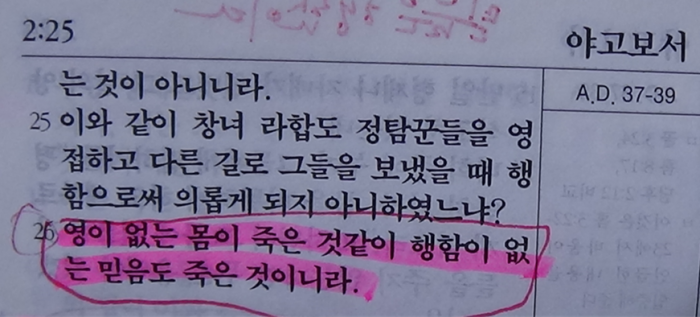 2:25
야고보서
는 것이 아니니라.
A.D. 37-39
25 이와 같이 창녀 라합도 정탐꾼들을 영
접하고 다른 길로 그들을 보냈을 때 행
함으로써 의롭게 되지 아니하였느냐?
26 영이 없는 몸이 죽은 것같이 행함이 없
는 믿음도 죽은 것이니라.